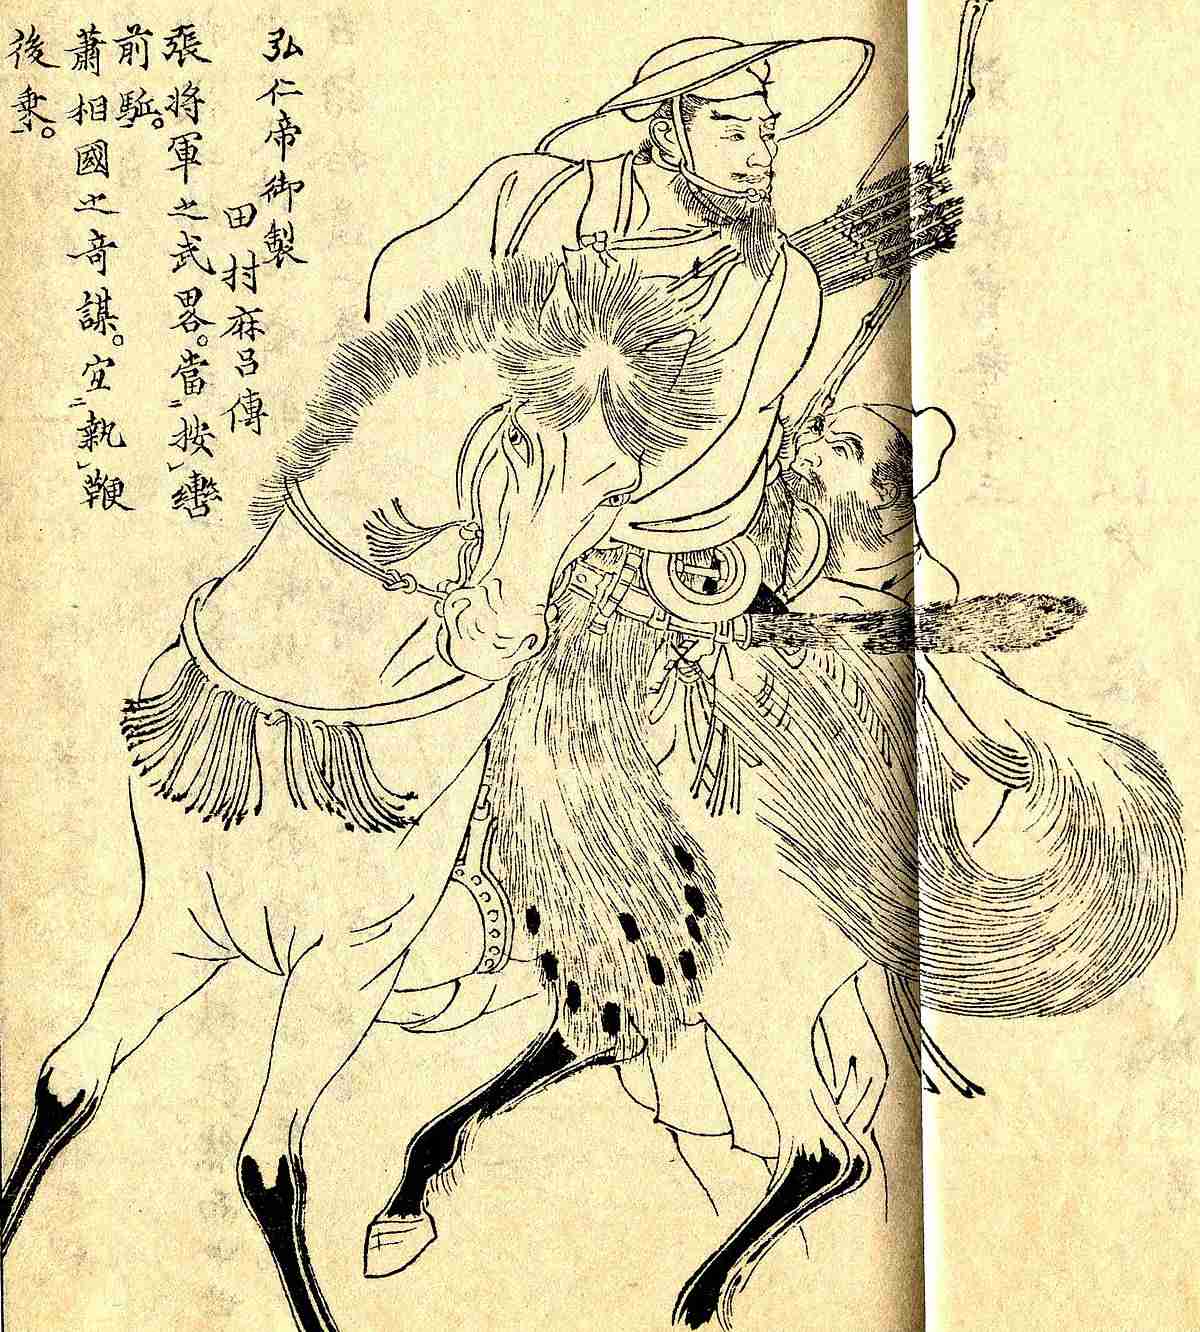 弘仁帝御製
田村麻呂傳
張將軍之武畧。當㆓按㆑轡
前駈。
蕭相國之奇謀。宜㆓執㆑鞭
後乗。